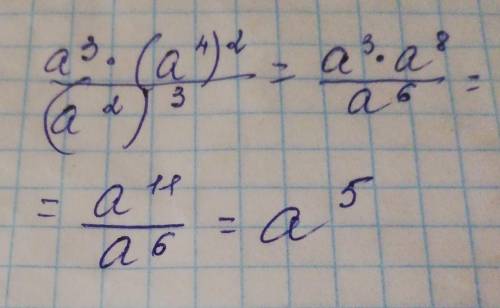 a³·(a⁴)²/(a²)³ = a³·a⁸/a⁶ =
= a¹¹/a⁶ = a⁵